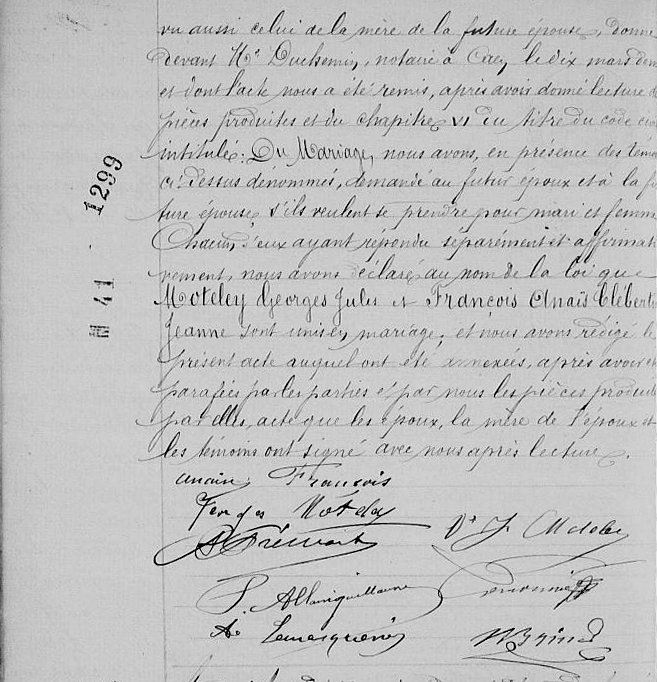 vu aussi celui de la mère de la future épouse, donné
devant Me Duchemin, notaire à Caen, le dix mars
et dont acte nous a été remis, après avoir donné lecture
pièces produites et du chapitre VI du titre du code
intitulé: Du Mariage, nous avons, en présence des
ci-dessus dénommés, demandé au futur époux et à la fu
ture épouse s'ils veulent se prendre pour mari et femme
Chacun d'eux ayant répondu séparément et affirmati
vement, nous avons déclaré au nom de la loi que
Moteley Georges Jules et François Anaïs
Jeanne sont unis en mariage, et nous avons rédigé le
présent acte auquel ont été annexées, après avoir
parafées par les parties et par nous les pièces
par elles, acte que les époux, la mère de l'époux et
les témoins ont signé avec nous après lecture.
François
Moteley
Vve J Moteley
1299
M 41